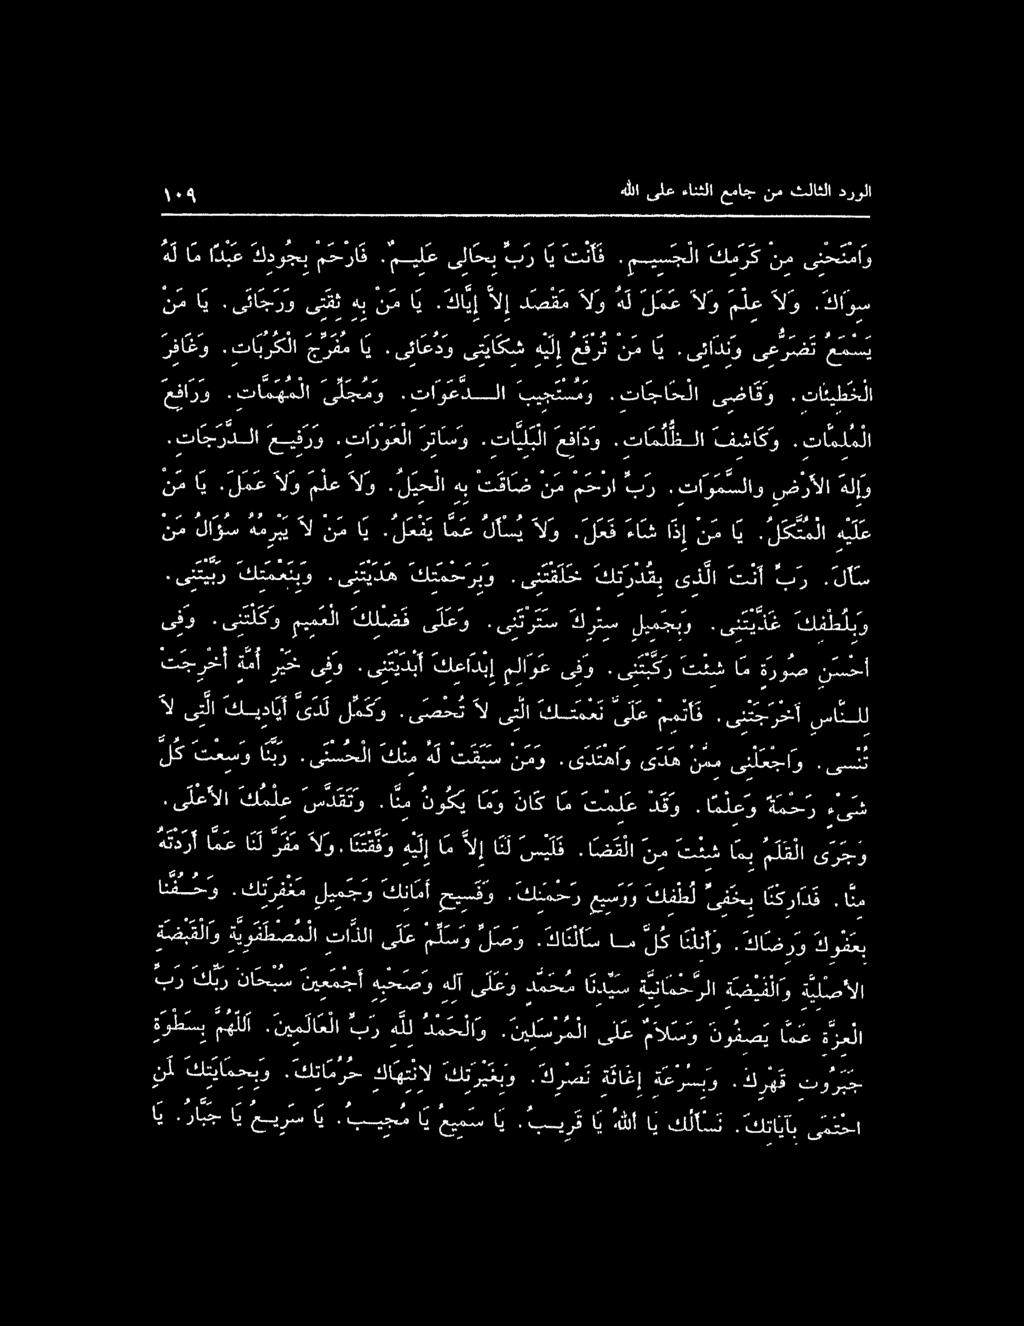 الورد الثالث من جامع الثناء على الله ١٠٩
وَامْنَحْنِى مِنْ كَرَمِكَ الْجَسِيمِ. فَأَنْتَ يَا رَبِّ بِحَالِى عَلِيمٌ. فَارْحَمْ بِجُودِكَ عَبْدًا مَا لَهُ
سِوَاكَ. وَلاَ عِلْمَ وَلاَ عَمَلَ لَهُ وَلاَ مَقْصَدَ إِلاَّ إِيَّاكَ. يَا مَنْ بِهِ ثِقَتِى وَرَجَائِى. يَا مَنْ
يَسْمَعُ تَضَرُّعِى وَنِدَائِى. يَا مَنْ تُرْفَعُ إِلَيْهِ شِكَايَتِى وَدُعَائِى. يَا مُفَرِّجَ الْكُرُبَاتِ. وَغَافِرَ
الْخَطِيئَاتِ. وَقَاضِى الْحَاجَاتِ. وَمُسْتَجِيبَ الـدَّعَوَاتِ. وَمُجَلِّىَ الْمُهِمَّاتِ. وَرَافِعَ
الْمُلِمَّاتِ. وَكَاشِفَ الـظُّلُمَاتِ. وَدَافِعَ الْبَلِيَّاتِ. وَسَاتِرَ الْعَوْرَاتِ. وَرَفِيـعَ الـدَّرَجَاتِ.
وَإِلهَ الأَرْضِ والسَّمَوَاتِ. رَبِّ ارْحَمْ مَنْ ضَاقَتْ بِهِ الْحِيَلُ. وَلاَ عِلْمَ وَلاَ عَمَلَ. يَا مَنْ
عَلَيْهِ الْمُتَّكَلُ. يَا مَنْ إِذَا شَاءَ فَعَلَ. وَلاَ يُسْأَلُ عَمَّا يَفْعَلُ. يَا مَنْ لاَ يُبْرِمُهُ سُؤَالُ مَنْ
سَأَلَ. رَبِّ أَنْتَ الَّذِى بِقُدْرَتِكَ خَلَقْتَنِى. وَبِرَحْمَتِكَ هَدَيْتَنِى. وَبِنِعْمَتِكَ رَبَّيْتَنِى.
وَبِلُطْفِكَ غَذَّيْتَنِى. وَبِجَمِيلِ سِتْرِكَ سَتَرْتَنِى. وَعَلَى فَضْلِكَ الْعَمِيمِ وَكَلْتَنِى. وَفِى
أَحْسَنِ صُورَةٍ مَا شِئْتَ رَكَّبْتَنِى. وَفِى عَوَالِمِ إِبْدَاعِكَ أَبْدَيْتَنِى. وَفِى خَيْرِ أُمَّةٍ أُخْرِجَتْ
لِلـنَّاسِ أَخْرَجْتَنِى. فَأَتْمِمْ عَلَىَّ نِعْمَتِـكَ الَّتِى لاَ تُحْصَى. وَكَمِّلْ لَدَىَّ أَيَادِيـكَ الَّتِى لاَ
تُنْسَى. وَاجْعَلْنِى مِمَّنْ هَدَى وَاهْتَدَى. وَمَنْ سَبَقَتْ لَهُ مِنْكَ الْحُسْنَى. رَبَّنَا وَسِعْتَ كُلَّ
شَىْءٍ رَحْمَةً وَعِلْمًا. وَقَدْ عَلِمْتَ مَا كَانَ وَمَا يَكُونُ مِنَّا. وَتَقَدَّسَ عِلْمُكَ الأَعْلَى.
وَجَرَى الْقَلَمُ بِمَا شِئْتَ مِنَ الْقَضَا. فَلَيْسَ لَنَا إِلاَّ مَا إِلَيْهِ وَفَّقْتَنَا. وَلاَ مَفَرَّ لَنَا عَمَّا أَرَدْتَهُ
مِنَّا. فَدَارِكْنَا بِخَفِىِّ لُطْفِكَ وَوَسِيعِ رَحْمَتِكَ. وَفَسِيحِ أَمَانِكَ وَجَمِيلِ مَغْفِرَتِكَ. وَحُـفَّنَا
بِعَفْوِكَ وَرِضَاكَ. وَأَنِلْنَا كُلَّ مـا سَأَلْنَاكَ. وَصَلِّ وَسَلِّمْ عَلَى الذَّاتِ الْمُصْطَفَوِيَّةِ وَالْقَبْضَةِ
الأَصْلِيَّةِ وَالْفَيْضَةِ الرَّحْمَانِيَّةِ سَيِّدِنَا مُحَمَّدٍ وَعَلَى آلِهِ وَصَحْبِهِ أَجْمَعِينَ سُبْحَانَ رَبِّكَ رَبِّ
الْعِزَّةِ عَمَّا يَصِفُونَ وَسَلاَمٌ عَلَى الْمُرْسَلِينَ. وَالْحَمْدُ لِلَّهِ رَبِّ الْعَالَمِينَ. اَللَّهُمَّ بِسَطْوَةِ
جَبَرُوتِ قَهْرِكَ. وَبِسُرْعَةِ إِغَاثَةِ نَصْرِكَ. وَبِغَيْرَتِكَ لاِنْتِهَاكِ حُرُمَاتِكَ. وَبِحِمَايَتِكَ لِمَنِ
احْتَمَى بِآيَاتِكَ. نَسْأَلُكَ يَا اَللهُ يَا قَرِيـبُ. يَا سَمِيعُ يَا مُجِيـبُ. يَا سَرِيـعُ يَا جَبَّارُ. يَا